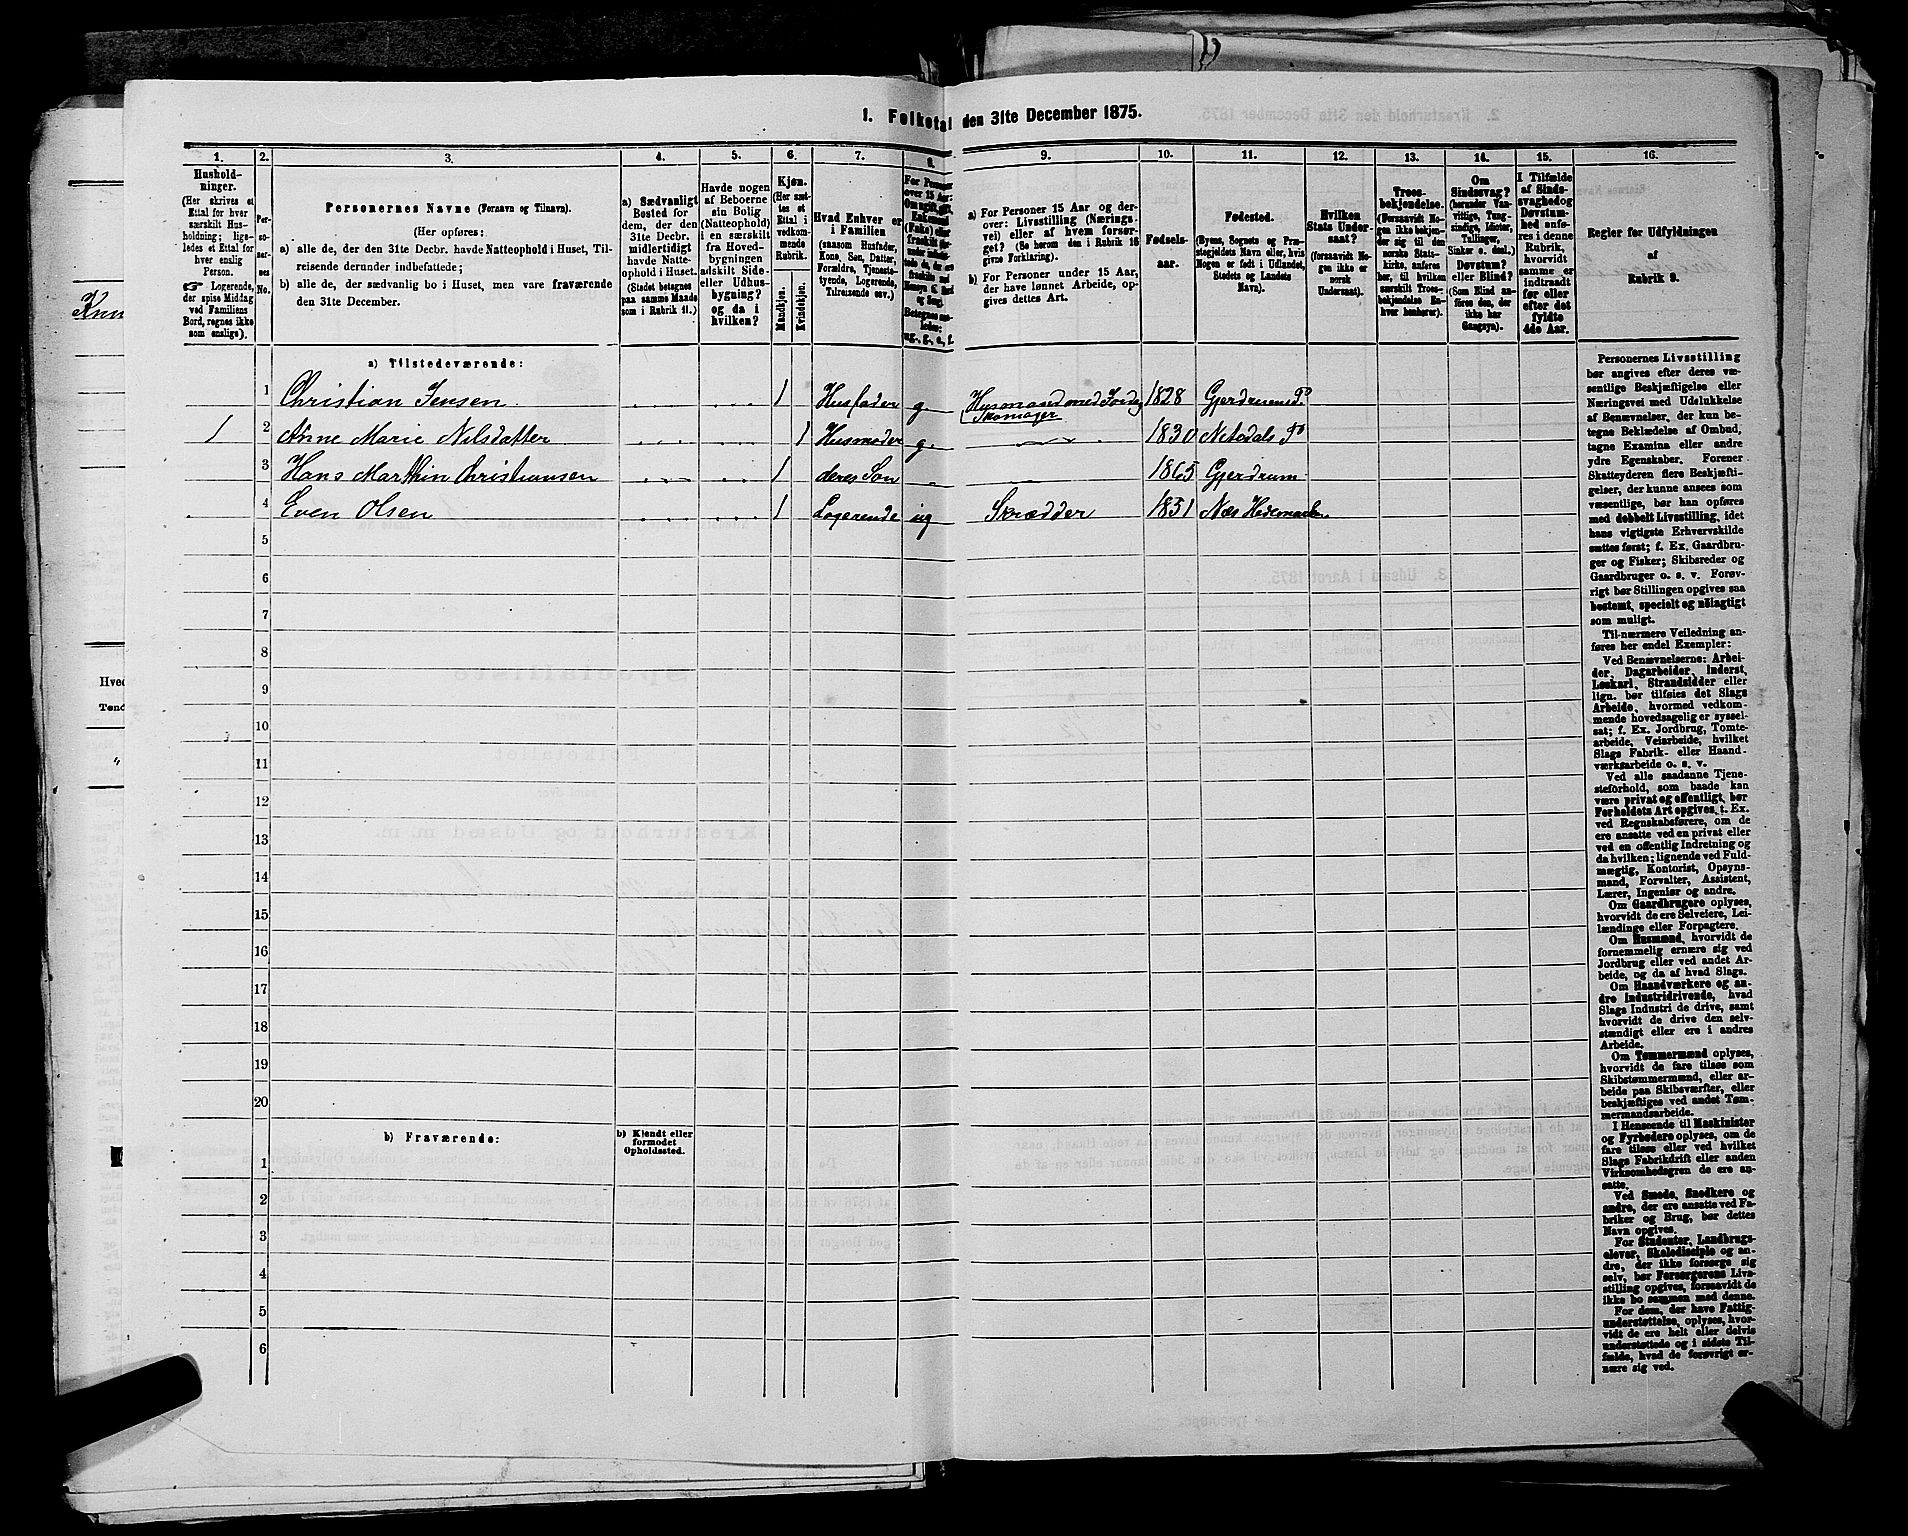 1. Folketal den 31te December 1875.
1. 2. 3. 4. 5. 6. 7. 8. 9. 10. 11. 12. 13. 14. 15. 16.
Hushold-
ninger.
(Her skrives et
Ettal for hver
særskilt Hus-
holdning; lige-
ledes et Ettal for
hver enslig
Person.
Logerende,
der spise Middag
ved Familiens
Bord, regnes ikke
som enslige).
Per-
so-
ner-
nes
No.
Personernes Navne (Fornavn og Tilnavn).
(Her opføres:
a) alle de, der den 31te Decbr. havde Natteophold i Huset, Til-
reisende derunder indbefattede;
b) alle de, der sædvanlig bo i Huset, men vare fraværende
den 31te December.
a) Sædvanligt
Bosted for
dem, der den
31te Decbr.
midlertidigt
havde Natte-
ophold i Huset.
(Stedet betegnes
paa samme Maade
som i Rubrik 11.)
Havde nogen
af Beboerne
sin Bolig
(Natteophold)
i en særskilt
fra Hoved-
bygningen
adskilt Side-
eller Udhus-
bygning?
og da i
hvilken?
Kjøn.
(Her sæt-
tes et
Ettal i
vedkom-
mende
Rubrik.
Mandkjøn.
Kvindekjøn.
Hvad Enhver er
i Familien
(saasom Husfader,
Kone, Søn, Datter,
Forældre, Tjeneste-
tyende, Logerende,
Tilreisende osv.)
For Personer
over 15 Aar:
a) For Personer 15 Aar og der-
over: Livsstilling (Nærings-
vei) eller af hvem forsør-
get? (Se herom den i Rubrik 16
givne Forklaring).
b) For Personer under 15 Aar,
der have lønnet Arbeide, op-
gives dettes Art.
Fødsels-
aar.
Fødested.
(Byens, Sognets og Præ-
stegjeldets Navn eller, hvis
Nogen er født i Udlandet,
Stedets og Landets
Navn).
Hvilken
Stats Under-
saat?
(forsaavidt No-
gen ikke er
norsk
Undersaat).
Troes-
bekjendelse.
(Forsaavidt No-
gen ikke bekjen-
der sig til den
norske Stats-
kirke, anføres
her, til hvilken
særskilt Troes-
bekjendelse En-
hver henhører).
Om
Sindssvag?
(herunder Van-
vittige, Tung-
sindige, Idioter,
Tullinger,
Sinker o. desl.)
Døvstum?
eller Blind?
(Som Blind an-
føres den, der
ikke har
Gangsyn).
I Tilfælde
af Sinds-
svaghed og
Døvstum-
hed anfø-
res i denne
Rubrik,
hvorvidt
samme er
indtraadt
før eller
efter det
fyldte
4de Aar.
Regler for Udfyldningen
af
Rubrik 9.
a) Tilstedeværende:
1 Christian Jensen 1 Husfader g. Husmand med Jord og Skomager 1828 Gjerdrum P.
1 2 Anne Marie Nilsdatter 1 Husmoder g. 1830 Nitedals P.
3 Hans Marthin Christiansen 1 deres Søn 1865 Gjerdrum
4 Even Olsen 1 Logerende ug Skrædder 1851 Næs Hedemarken
5
6
7
8
9
10
11
12
13
14
15
16
17
18
19
20
b) Fraværende:
b) Kjendt eller
formodet
Opholdssted.
1
2
3
4
5
6
Personernes Livsstilling
bør angives efter deres væ-
sentlige Beskjæftigelse eller
Næringsvei med Udelukkelse
af Benævnelser, der kun be-
tegne Beklædelse af Ombud,
tagne Examina eller andre
ydre Egenskaber. Forener
Skatteyderen flere Beskjæfti-
gelser, der kunne ansees som
væsentlige, bør han opføres
med dobbelt Livsstilling, idet
hans vigtigste Erhvervskilde
sættes først; f. Ex. Gaardbru-
ger og Fisker; Skibsreder og
Gaardbruger o. s. v. Forøv-
rigt bør Stillingen opgives saa
bestemt, specielt og nøiagtigt
som muligt.
Til nærmere Veiledning an-
føres her endel Exempler:
Ved Benævnelserne: Arbei-
der, Dagarbeider, Inderst,
Løskarl, Strandsidder eller
lign. bør tilføies det Slags
Arbeide, hvormed vedkom-
mende hovedsagelig er syssel-
sat; f. Ex. Jordbrug, Tomte-
arbeide, Veiarbeide, hvilket
Slags Fabrik- eller Haand-
værksarbeide o. s. v.
Ved alle saadanne Tjene-
steforhold, som baade kan
være privat og offentligt, bør
Forholdets Art opgives, f. Ex.
ved Regnskabsførere, om de
ere ansatte ved en privat eller
ved en offentlig Indretning og
da hvilken; lignende ved Fuld-
mægtig, Kontorist, Opsyns-
mand, Forvalter, Assistent,
Lærer, Ingeniør og andre.
Om Gaardbrugere oplyses,
hvorvidt de ere Selveiere, Lei-
lændinge eller Forpagtere.
Om Husmænd, hvorvidt de
fornemmelig ernære sig ved
Jordbrug eller ved andet Ar-
beide, og da af hvad Slags.
Om Haandværkere og an-
dre Industridrivende, hvad
Slags Industri de drive, samt
hvorvidt de drive den selv-
stændigt eller ere i andres
Arbeide.
Om Tømmermænd oplyses,
hvorvidt de fare tilsøs som
Skibstømmermænd, eller ar-
beide paa Skibsværfter, eller
beskjæftiges ved andet Tøm-
mermandsarbeide.
I Henseende til Maskinister
og Fyrbødere oplyses, om de
fare tilsøs eller ved hvilket
Slags Fabrikdrift eller anden
Virksomhedsgren de ere an-
satte.
Ved Smede, Snedkere og
andre, der ere ansatte ved Fa-
briker og Brug, bør dettes
Navn opgives.
For Studenter, Landbrugs-
elever, Skoledisciple og an-
dre, der ikke forsørge sig
selv, bør Forsørgerens Livs-
stilling opgives, forsaavidt de
ikke bo sammen med denne.
For dem, der have Fattig-
understøttelse, oplyses, hvor-
vidt de ere helt eller delvis
understøttede og i sidste Til-
fælde, hvad de forøvrigt er-
nære sig ved.
Hved
Tønd